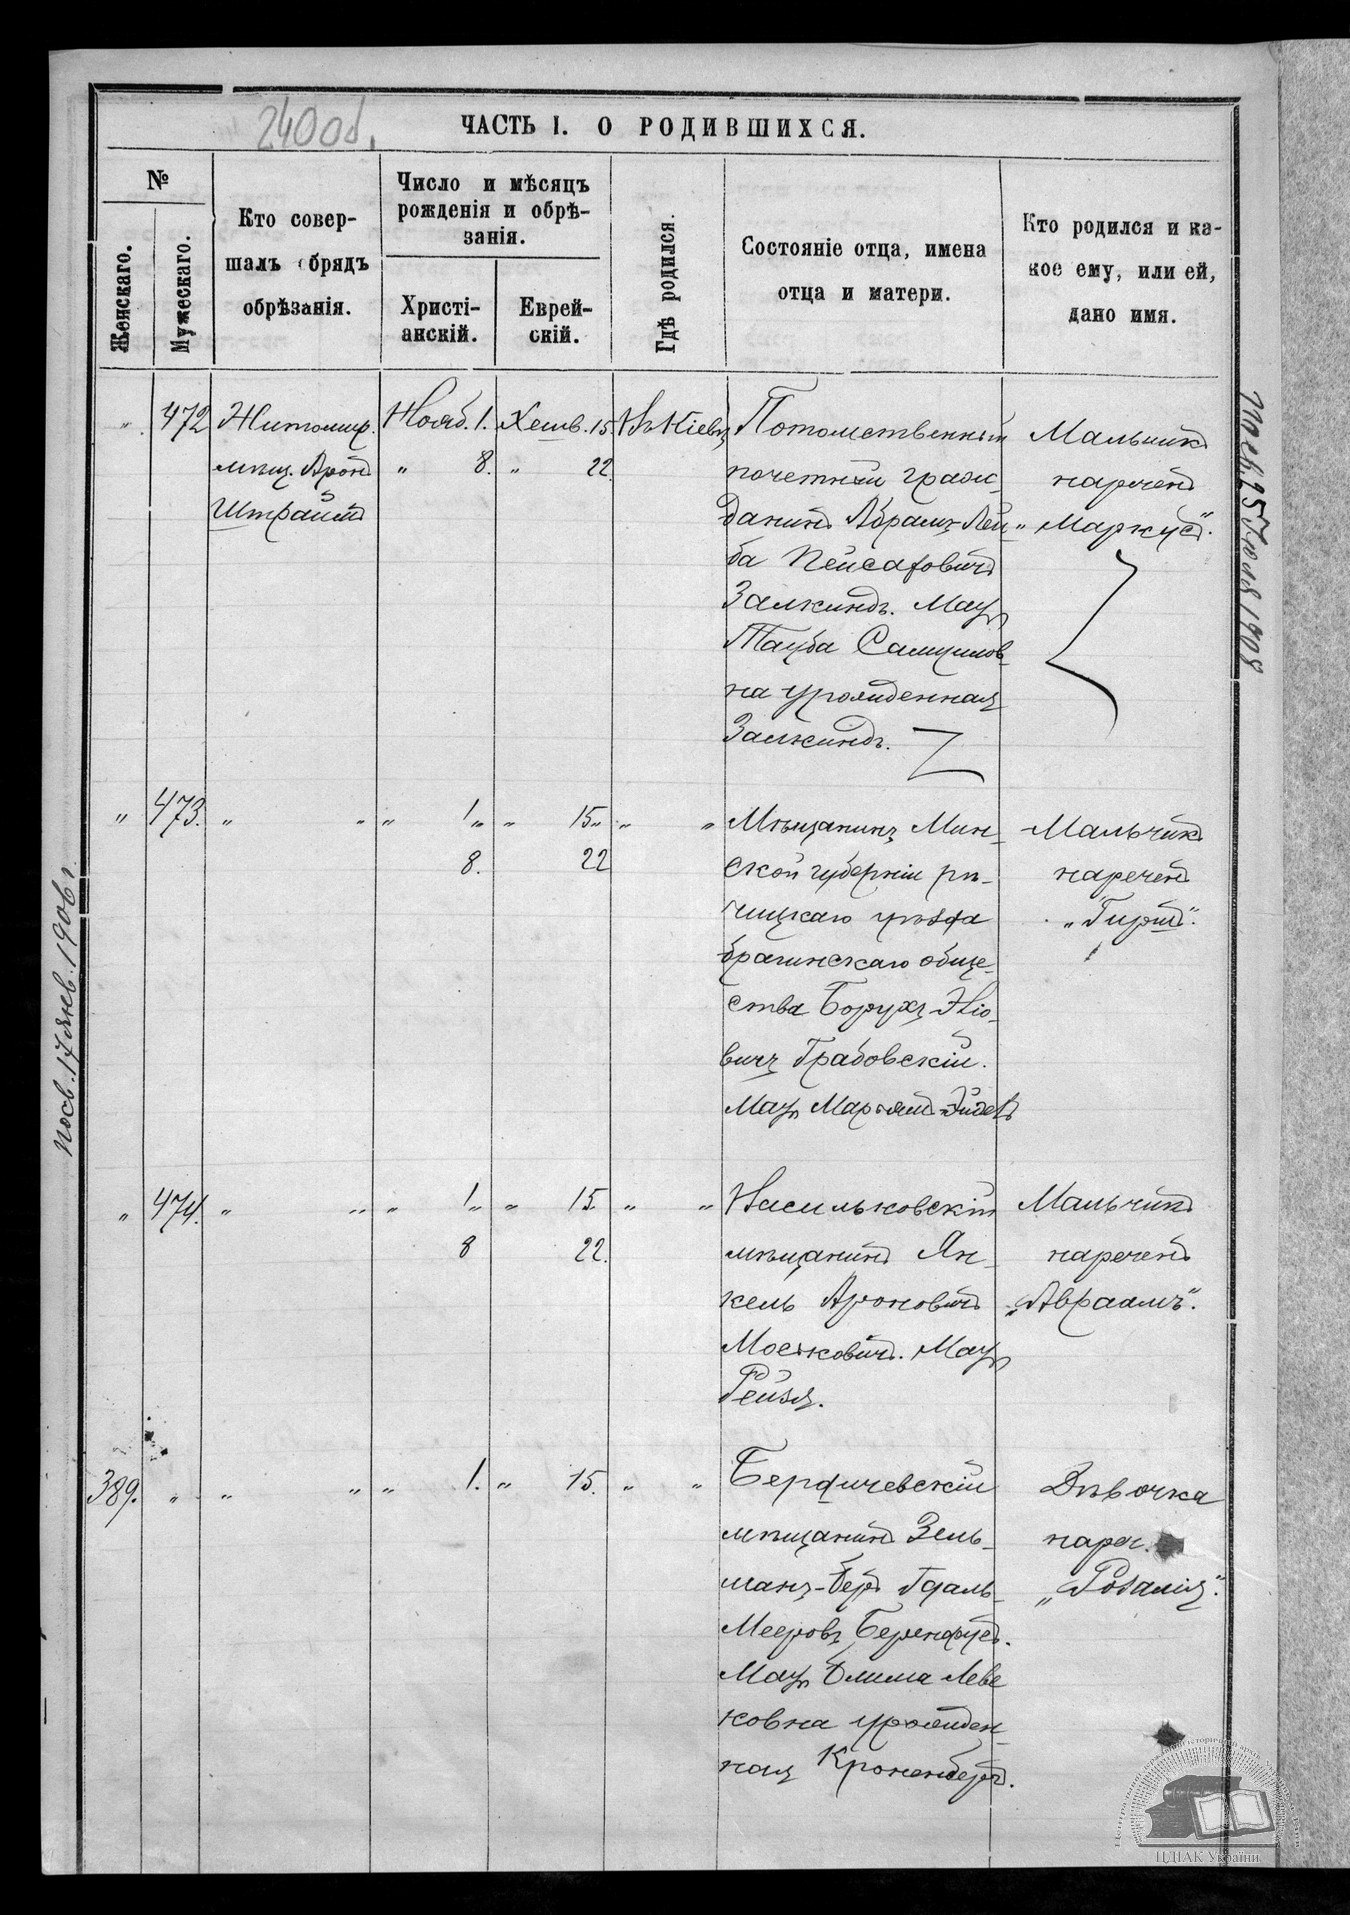 240 об.
ЧАСТЬ I. О РОДИВШИХСЯ.
№
Женскаго.
Мужескаго.
Кто совер-
шалъ обрядъ
обрѣзанія.
Число и мѣсяцъ
рожденія и обрѣ-
занія.
Христі-
анскій.
Еврей-
скій.
Гдѣ родился.
Состояніе отца, имена
отца и матери.
Кто родился и ка-
кое ему, или ей,
дано имя.
" 472
Житомир.
мѣщ. Аронъ
Штраймъ
Нояб. 1.
" 8.
Хешв. 15.
" 22.
Въ Кіевѣ
Потомственный
почетный граж-
данинъ Абрамъ-Лей-
ба Пейсаховичъ
Залкиндъ. Мать
Тауба Самуилов-
на урожденная
Залкиндъ.
Мальчикъ
нареченъ
„Маркусъ".
" 473. " " " 1 " " 15 " " "
8. 22
Мѣщанинъ Мин-
ской губерніи рѣ-
чицкаго уѣзда
брагинскаго обще-
ства Борухъ
вичъ Грабовскій.
Мать Марьямъ
Мальчикъ
нареченъ
„Гиршъ".
" 474. " " " 1 " " 15. " "
8 22.
Васильковскій
мѣщанинъ Ян-
кель Ароновичъ
Мошковичъ. Мать
Рейзя.
Мальчикъ
нареченъ
„Авраамъ".
389. " " " " 1. " 15. " "
Бердичевскій
мѣщанинъ Зель-
манъ-Беръ Гдаль-
Мееровъ
Мать Блима Лейв-
ковна урожден-
ная Кроненбергъ.
Дѣвочка
нареч.
„Розалія".
посв. 17 янв. 1906 г.
25 Іюля 1908
ЦДІАК України